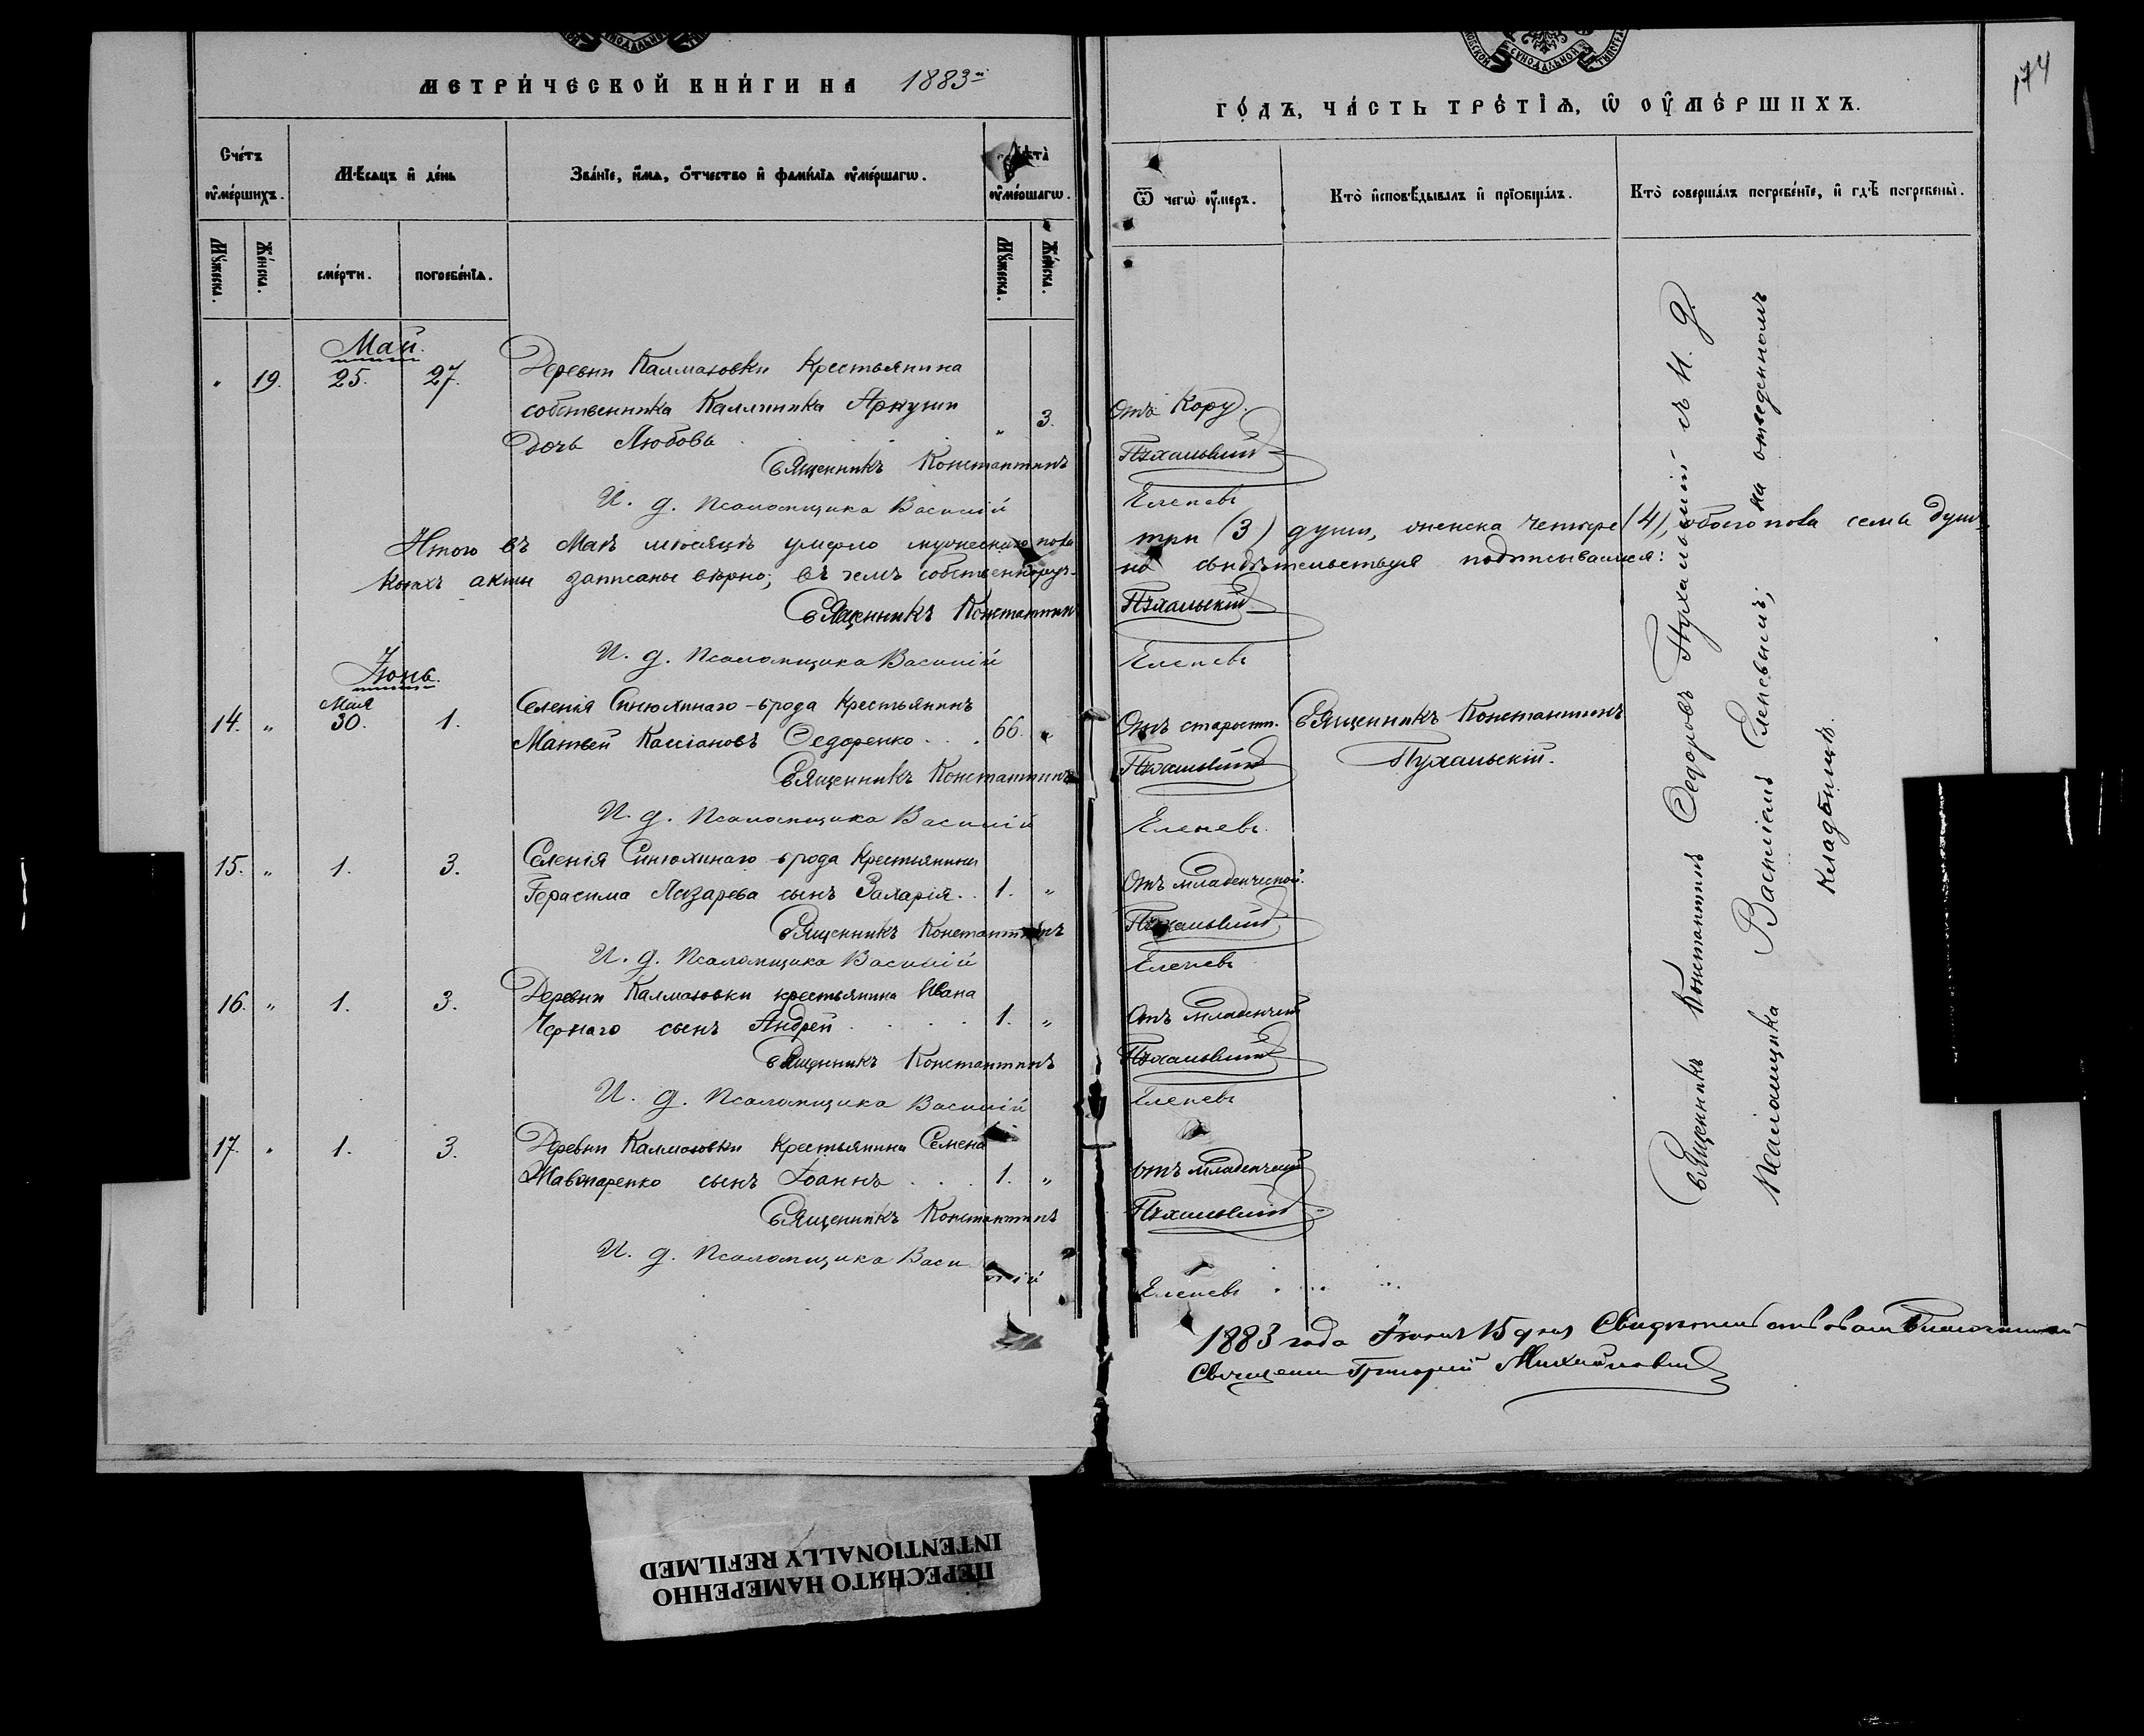 МЕТРИЧЕСКОЙ КНИГИ НА 1883й
Счетъ умершихъ.
Мѣсяцъ и день
Званіе, имя, отчество и фамилія умершаго.
умершаго.
Мужеска.
Женска.
смерти.
погребенія.
Мужеска.
Женска.
Май.
" 19. 25. 27. Деревни Калмазовки Крестьянина
собственника Каллиника
дочь Любовь . . . . " 3.
Священникъ Константинъ
И. д. Псаломщика Василій
Итого въ Маѣ мѣсяцѣ умерло мужескаго пола
акты записаны вѣрно; въ чемъ собственноруч-
Священникъ Константинъ
И. д. Псаломщика Василій
Іюнь.
Мая
14. " 30. 1. Селенія Синюхинаго-брода Крестьянинъ
Матвей Кассіановъ Федоренко . . . 66. "
Священникъ Константинъ
И. д. Псаломщика Василій
15. " 1. 3. Селенія Синюхинаго-брода Крестьянина
Герасима Лазарева сынъ Захарія . . 1. "
Священникъ Константинъ
И. д. Псаломщика Василій
16. " 1. 3. Деревни Калмазовки крестьянина Ивана
Чернаго сынъ Андрей . . . . 1. "
Священникъ Константинъ
И. д. Псаломщика Василій
17. " 1. 3. Деревни Калмазовки Крестьянина Семена
сынъ Іоаннъ . . . 1. "
Священникъ Константинъ
И. д. Псаломщика Василій
174
ГОДЪ, ЧАСТЬ ТРЕТІЯ, Ѡ УМЕРШИХЪ.
Ѿ чего умеръ.
Кто исповѣдывалъ и пріобщалъ.
Кто совершалъ погребеніе, и гдѣ погребены.
Отъ Кору.
Пухальскій
Еленевъ
три (3) души, женска четыре (4), обоего пола семь душ
но свидѣтельствуя подписываемся:
Пухальскій
Еленевъ
Отъ старости. Священникъ Константинъ
Пухальскій Пухальскій.
Еленевъ.
Отъ младенческой.
Пухальскій
Еленевъ
Отъ младенческой
Пухальскій
Еленевъ
Отъ младенческой
Пухальскій
Еленевъ
Священникъ Константинъ Федоровъ Пухальскій съ И. д.
Псаломщика Василіемъ Еленевымъ; на отведенномъ
кладбищѣ.
1883 года Іюня 15 дня Свидѣтельствовалъ Благочинный
Священникъ Григорій
ПЕРЕСНЯТО НАМЕРЕННО
INTENTIONALLY REFILMED